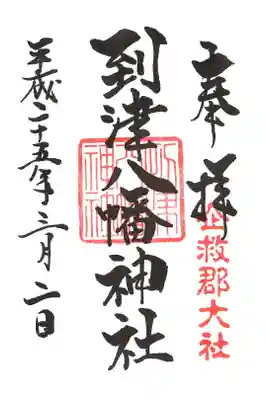 奉拝
企救郡大社
到津八幡神社
平成二十五年三月二日